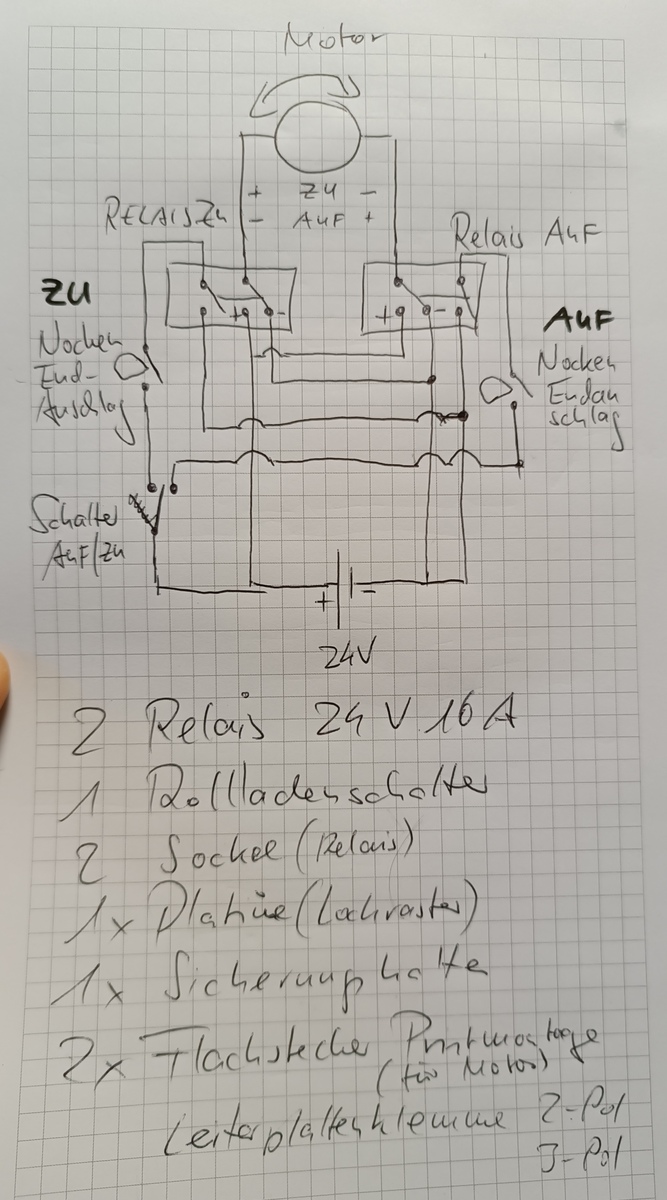 Motor
+ ZU -
- AUF +
RELAIS ZU
Relais AUF
ZU
Nocken
End-
Anschlag
+ -
+ -
AUF
Nocken
Endan
schlag
Schalter
AUF/ZU
+ -
24V
2 Relais 24 V 16 A
1 Rollladenschalter
2 Sockel (Relais)
1x Platine (Lochraster)
1x Sicherunghalte
2x Flachstecker Printmontage
(für Motor)
Leiterplattenklemme 2-Pol
3-Pol